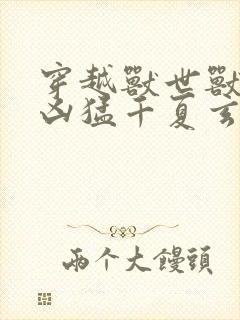 穿越獸世獸
凶猛千夏玄
兩个大饅頭